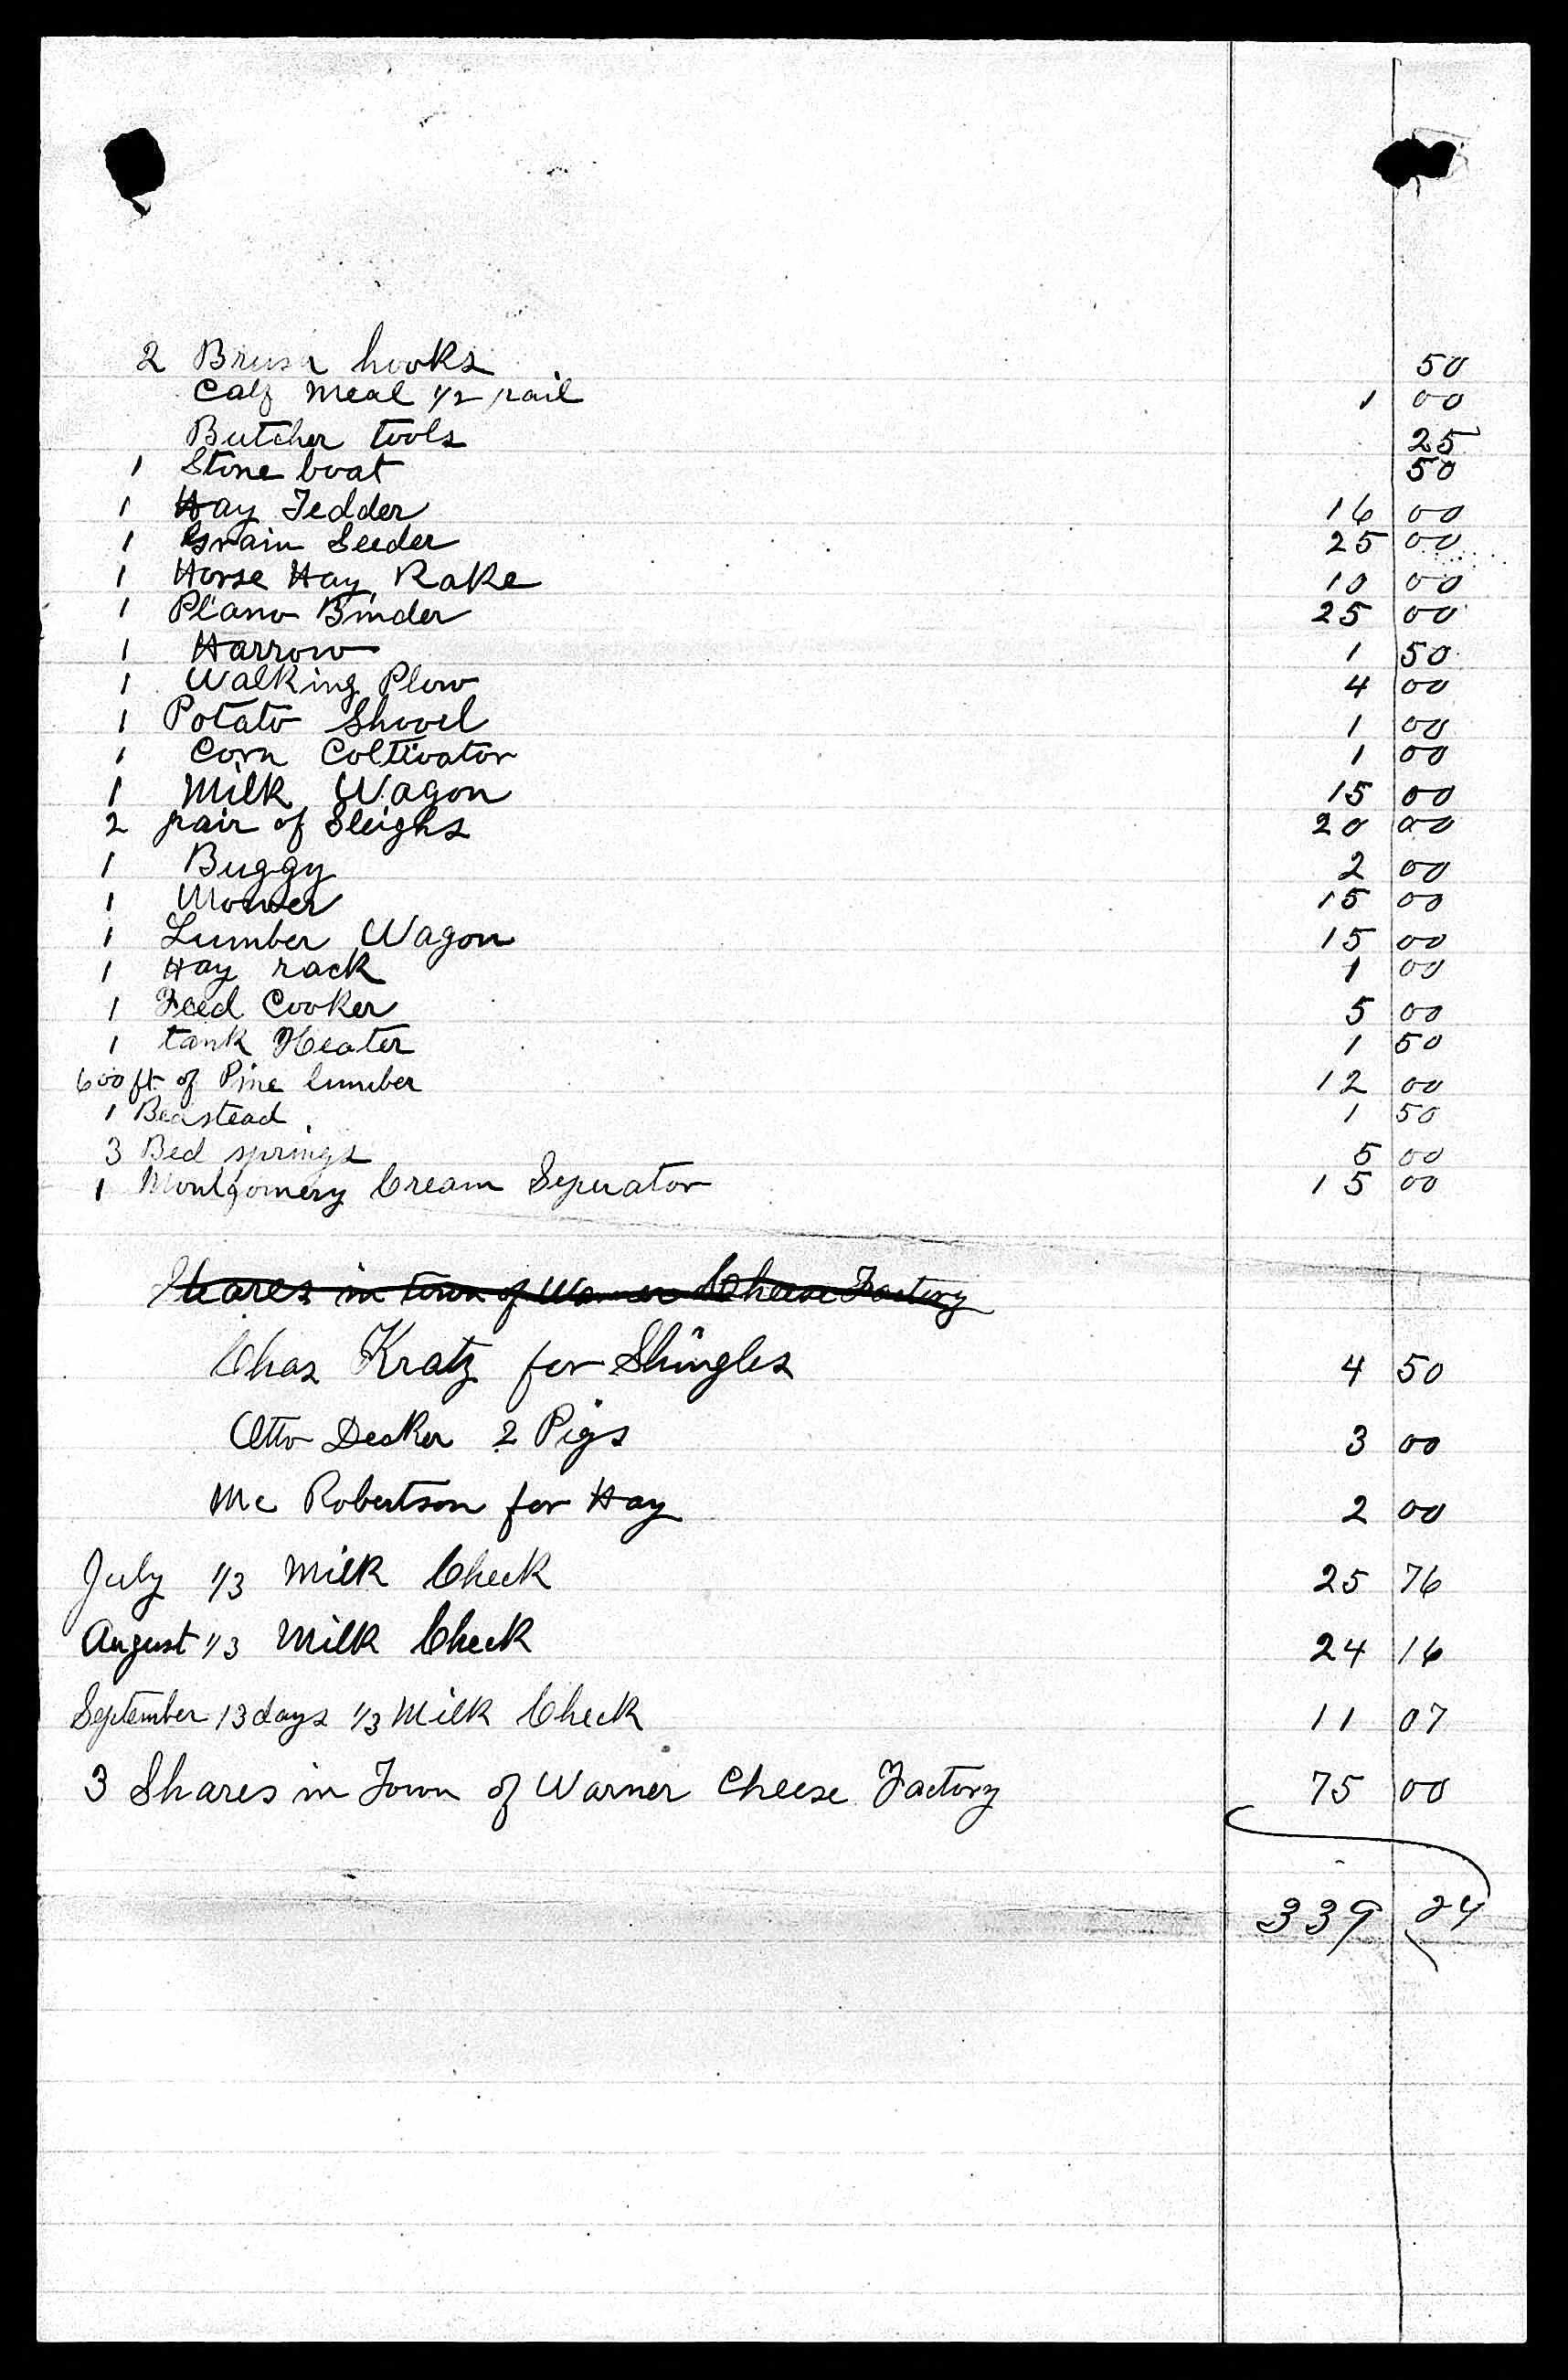 2 Brush hooks 50
Calf Meal 1/2 pail 1 00
Butcher tools 25
1 Stone boat 50
1 Hay Tedder 16 00
1 Grain Seeder 25 00
1 Horse Hay Rake 10 00
1 Plano Binder 25 00
1 Harrow 1 50
1 Walking Plow 4 00
1 Potato Shovel 1 00
1 Corn Coltivator 1 00
1 Milk Wagon 15 00
2 pair of Sleighs 20 00
1 Buggy 2 00
1 Mower 15 00
1 Lumber Wagon 15 00
1 Hay rack 1 00
1 Feed Cooker 5 00
1 tank Heater 1 50
600 ft. of Pine lumber 12 00
1 Bedstead 1 50
3 Bed springs 5 00
1 Montgomery Cream Seperator 15 00
Shares in town of Warner Cheese Factory
Chas Kratz for Shingles 4 50
Otto Decker 2 Pigs 3 00
Mc Robertson for Hay 2 00
July 1/3 Milk Check 25 76
August 1/3 Milk Check 24 16
September 13 days 1/3 Milk Check 11 07
3 Shares in Town of Warner Cheese Factory 75 00
339 24